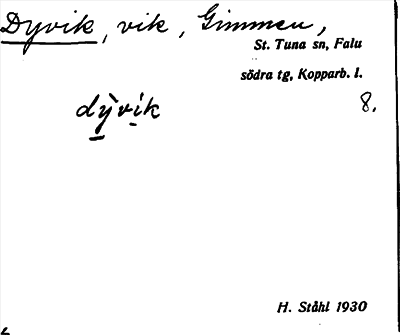 Dyvik, vik, Gimmen,
St. Tuna sn, Falu
södra tg, Kopparb. l.
dỳvik 8.
H. Ståhl 1930